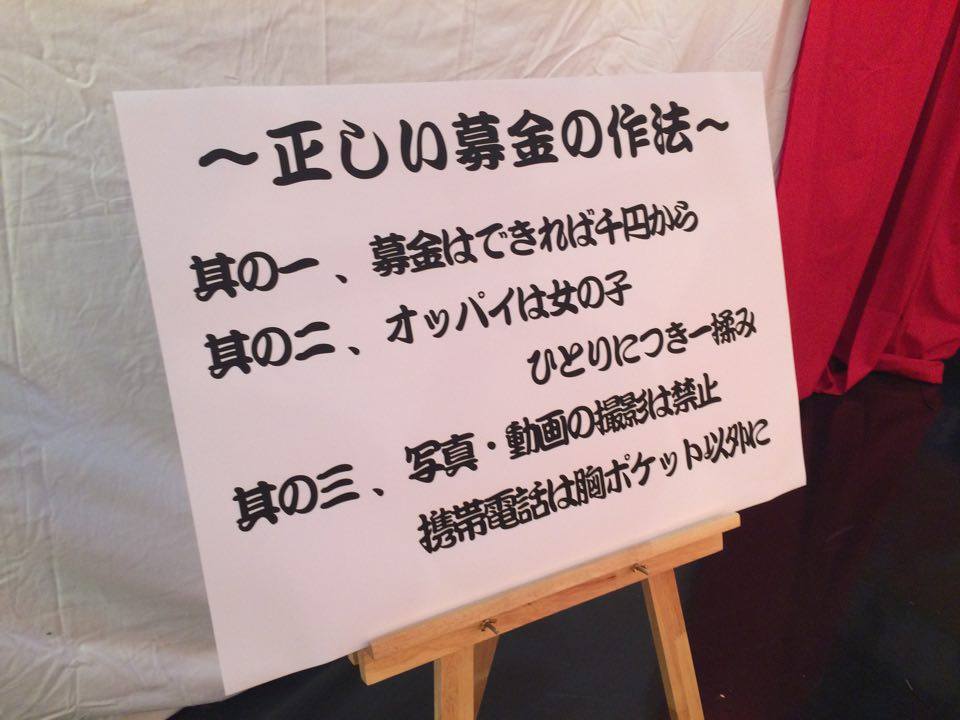 ～正しい募金の作法～
其の一、募金はできれば千円から
其の二、オッパイは女の子
ひとりにつき一揉み
其の三、写真・動画の撮影は禁止
携帯電話は胸ポケット以外に